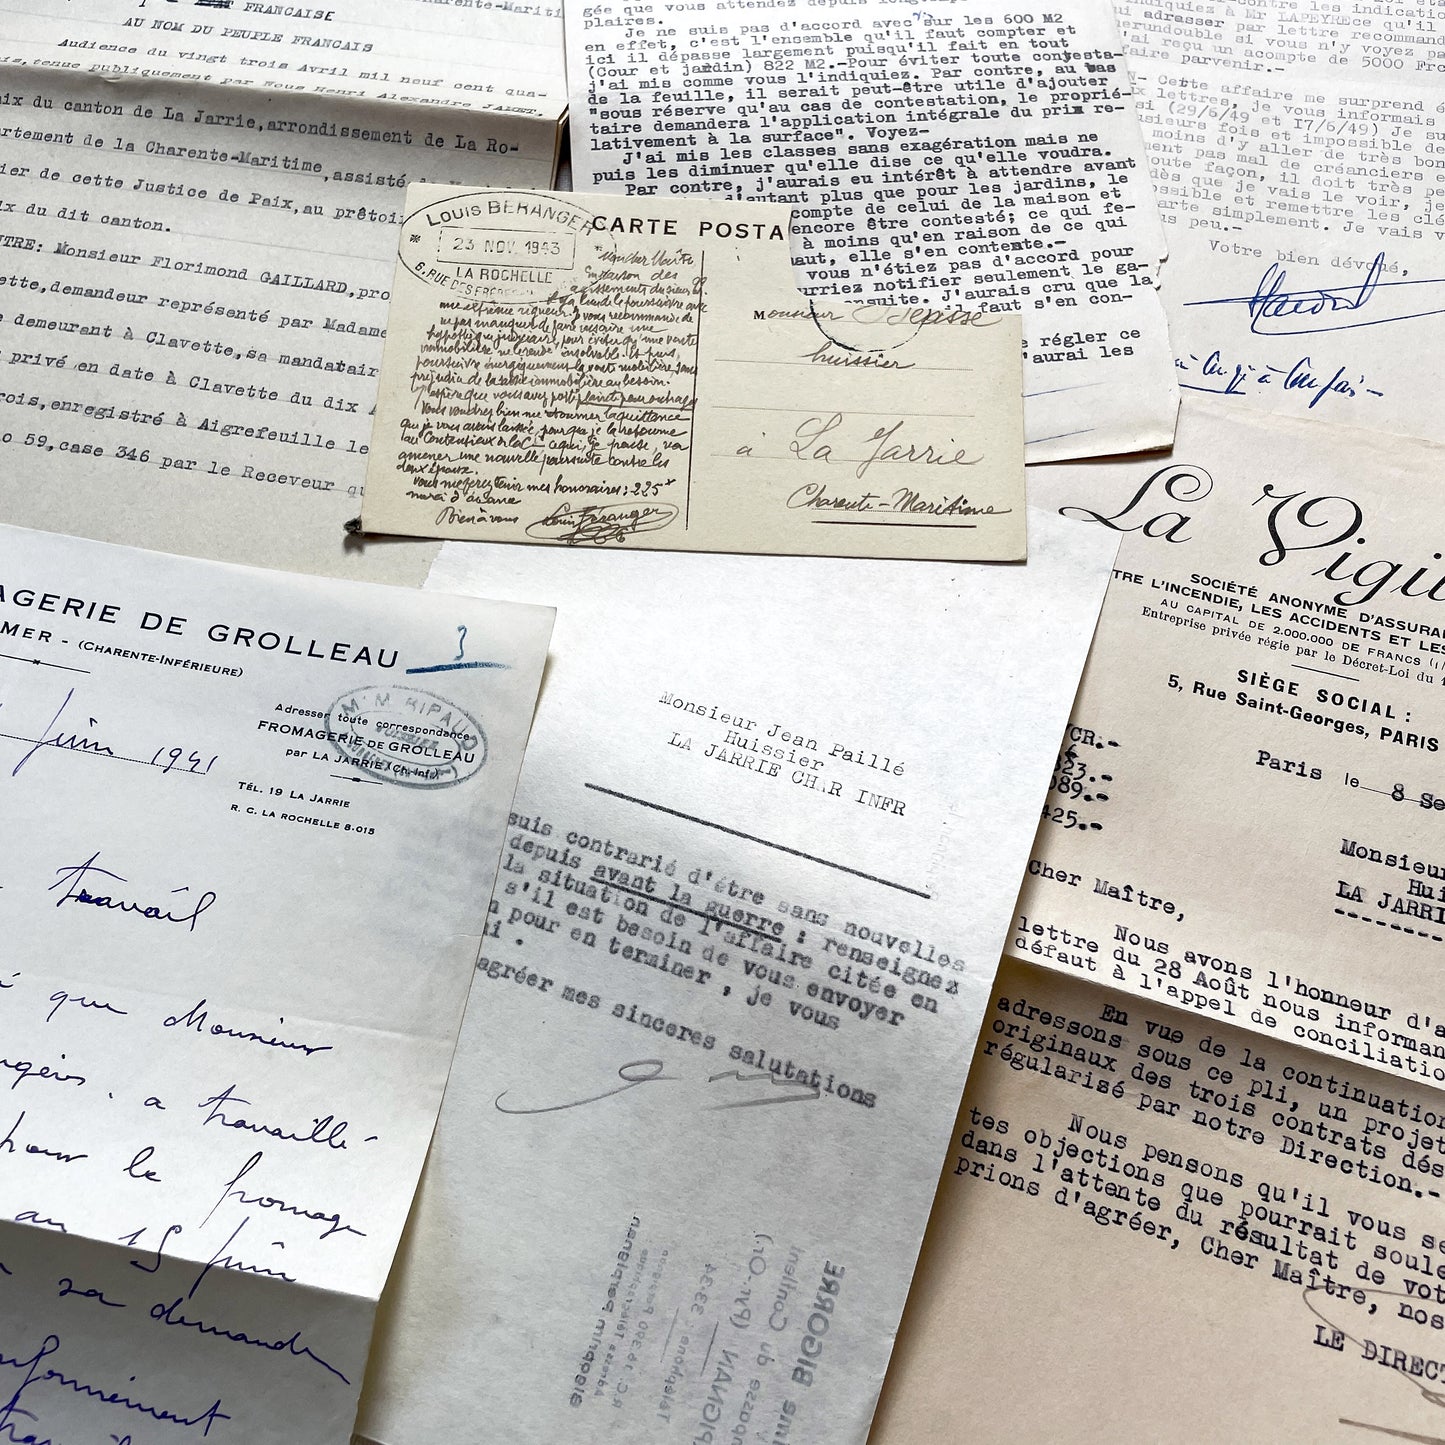 FRANCAISE
AU NOM DU PEUPLE FRANCAIS
Audience du vingt trois Avril mil neuf cent qua-
tenue publiquement par Nous Henri Alexandre JAMET,
aix du canton de La Jarrie,arrondissement de La Ro-
artement de la Charente-Maritime,assisté
ier de cette Justice de Paix,au prétoi
ix du dit canton.
NTRE: Monsieur Florimond GAILLARD,pro
ette,demandeur représenté par Madame
e demeurant à Clavette,sa mandatair
privé en date à Clavette du dix
rois,enregistré à Aigrefeuille le
o 59,case 346 par le Receveur qu
gée que vous attendez depuis longtemps
plaires.
Je ne suis pas d'accord avec sur les 600 M2
en effet, c'est l'ensemble qu'il faut compter et
ici il dépasse largement puisqu'il fait en tout
(Cour et jardin) 822 M2.-Pour éviter toute contesta-
j'ai mis comme vous l'indiquiez. Par contre, au bas
de la feuille, il serait peut-être utile d'ajouter
"sous réserve qu'au cas de contestation, le proprié-
taire demandera l'application intégrale du prix re-
lativement à la surface". Voyez-
J'ai mis les classes sans exagération mais ne
puis les diminuer qu'elle dise ce qu'elle voudra.
Par contre, j'aurais eu intérêt à attendre avant
d'autant plus que pour les jardins, le
compte de celui de la maison et
encore être contesté; ce qui fe-
à moins qu'en raison de ce qui
haut, elle s'en contente.-
vous n'étiez pas d'accord pour
urriez notifier seulement le ga-
ensuite. J'aurais cru que la
faut s'en con-
régler ce
'aurai les
contre les indicatio
indiquiez à Mr LAPEYRE ce qu'il
adresser par lettre recommand
si vous n'y voyez pa
'ai reçu un acompte de 5000 Fro
faire parvenir.-
N- Cette affaire me surprend é
x lettres, je vous informais
si (29/6/49 et 17/6/49) Je su
usieurs fois et impossible
moins d'y aller de très bon
ment pas mal de créanciers e
oute façon, il doit très pe
dès que je vais le voir, je
ossible et remettre les clé
arte simplement. Je vais v
us peu.-
Votre bien dévoué,
LOUIS BERANGER
23 NOV. 1943
LA ROCHELLE
6, RUE DES
CARTE POSTA
En raison des
agissements du sieur
une extrême rigueur. Je vous recommande de
ne pas manquer de faire
pour éviter qu'une vente
immobilière ne le rende insolvable. Et puis,
poursuivre énergiquement la vente mobilière sans
préjudice de la saisie immobilière au besoin.
J'espère que vous avez porté plainte pour outrages
Vous voudrez bien me retourner la quittance
que je vous avais laissée, pour que je la retourne
au Contentieux
amener une nouvelle poursuite contre les
deux époux.
Vous me ferez tenir mes honoraires: 225
merci d'avance
Bien à vous
Louis Béranger
Monsieur
huissier
à La Jarrie
Charente-Maritime
AGERIE DE GROLLEAU
MER - (CHARENTE-INFÉRIEURE)
3
juin 1941
Adresser toute correspondance
FROMAGERIE DE GROLLEAU
par LA JARRIE (Ch.-Inf.)
TÉL. 19 LA JARRIE
R. C. LA ROCHELLE 8.015
M. RIPAUD
travail
que Monsieur
a travaillé
pour le fromage
au 15 juin
sa demande
Monsieur Jean Paillé
Huissier
LA JARRIE CHAR INFR
suis contrarié d'être sans nouvelles
depuis avant la guerre : renseignez
la situation de l'affaire citée en
s'il est besoin de vous envoyer
n pour en terminer , je vous
i .
agréer mes sincères salutations
BIGORRE
Impasse du Conflent
PERPIGNAN (Pyr.-Or.)
Téléphone : 33.34
R.C. 16390 Perpignan
Adresse Télégraphique :
Bigoprim Perpignan
La Vigil
SOCIÉTÉ ANONYME D'ASSURA
TRE L'INCENDIE, LES ACCIDENTS ET LES
AU CAPITAL DE 2.000.000 DE FRANCS
Entreprise privée régie par le Décret-Loi du 1
SIÈGE SOCIAL :
5, Rue Saint-Georges, PARIS
CR.-
23.-
089.-
425.-
Paris le 8 Se
Monsieur
Hui
LA JARRI
Cher Maître,
Nous avons l'honneur d'a
lettre du 28 Août nous informan
défaut à l'appel de conciliatio
En vue de la continuation
adressons sous ce pli, un projet
originaux des trois contrats dés
régularisé par notre Direction.-
Nous pensons qu'il vous se
tes objections que pourrait soule
dans l'attente du résultat de vot
prions d'agréer, Cher Maître, nos
LE DIRECT